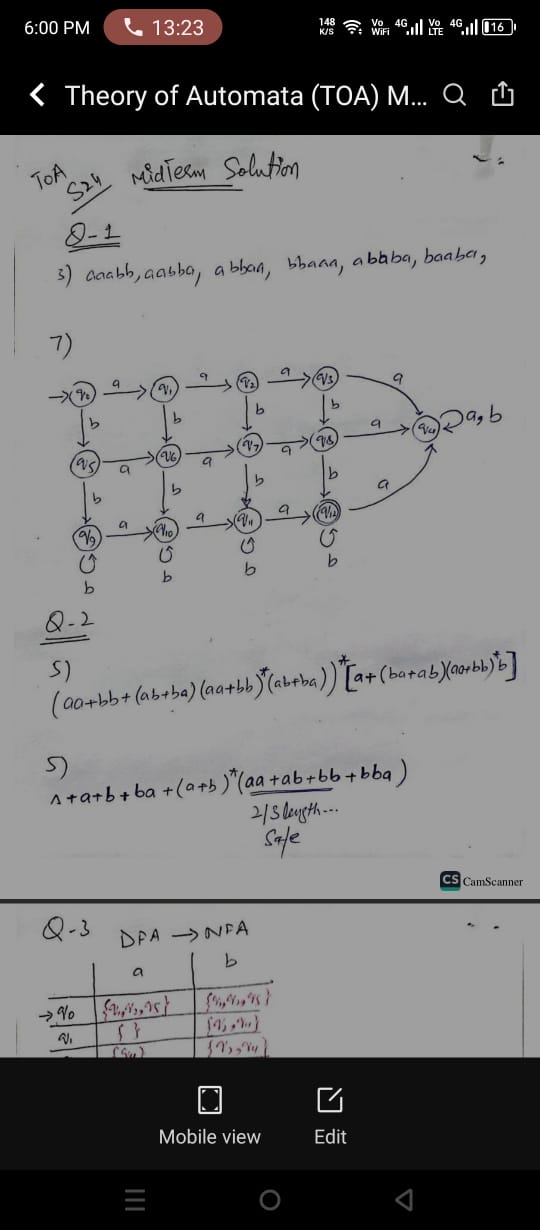 6:00 PM 13:23 148 K/S Vo WiFi 4G Vo LTE 4G 16
Theory of Automata (TOA) M...
TOA S24 MidTerm Solution
Q-1
3) aaabb, aabba, abbaa, bbaaa, abbba, baaba,
7)
a a a a
q0 q1 q2 q3
b b b b
q4 a, b
q5 a q6 a q7 a q8 a
b b b b
a
q9 a q10 a q11 a q12
b b b b
Q-2
5)
(aa+bb+(ab+ba)(aa+bb)*(ab+ba))*[a+(ba+ab)(aa+bb)*b]
5)
Λ+a+b+ba+(a+b)*(aa+ab+bb+bba)
2/3 length...
Safe
CS CamScanner
Q-3 DFA → NFA
a b
→ q0
q1 { }
Mobile view Edit